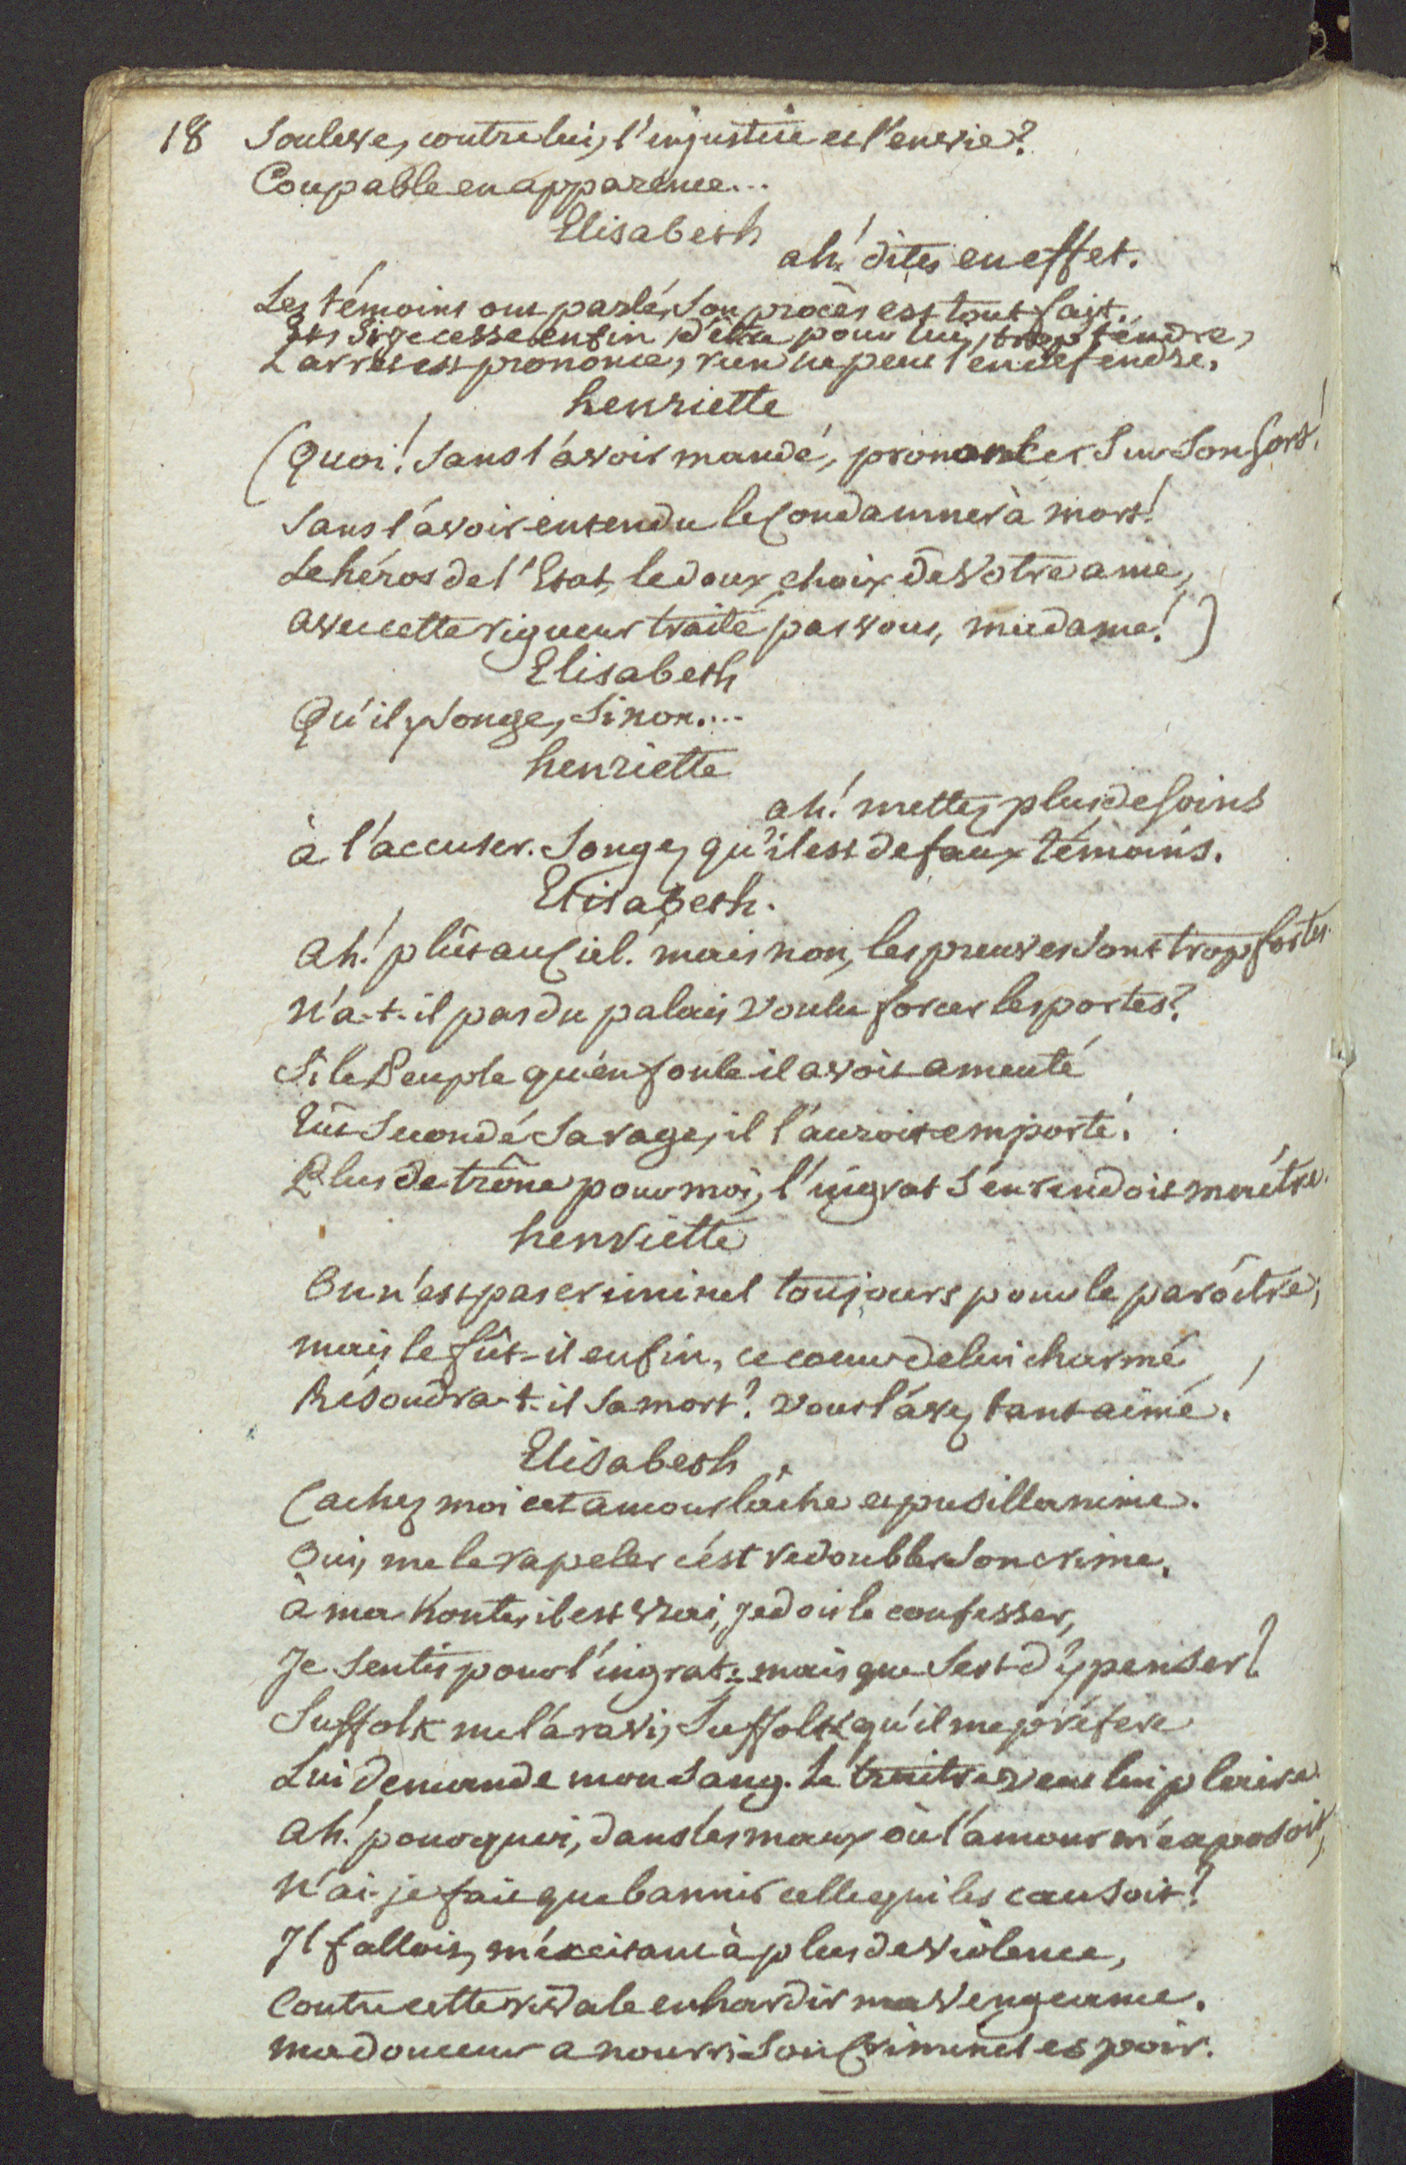 18 Souleve, contre lui, l'injustice et l'envie?
Coupable en apparence...
Elisabeth
ah! dites en effet.
Les témoins ont parlé, Son procès est tout fait.
Et Si je cesse enfin d'être pour lui, trop tendre,
L'arrêt est prononcé, rien ne peut l'en défendre.
henriette
(Quoi! Sans l'avoir mandé, prononcer Sur Son Sort!
Sans l'avoir entendu le Condamner à mort!
Le héros de l'Etat, le doux choix de votre ame,
avec cette rigueur traité par vous, madame!)
Elisabeth
Qu'il y Songe, Sinon....
henriette
ah! mettez plus de Soins
à l'accuser. Songez qu'il est de faux témoins.
Elisabeth.
Ah! plût au Ciel! mais non, les preuves Sont trop fortes.
N'a-t-il pas du palais voulu forcer les portes?
Si le Peuple qu'en foule il avoit ameuté
Eût Secondé Sa rage, il l'auroit emporté.
Plus de trône pour moi, l'ingrat S'en rendoit maître.
henriette
On n'est pas criminel toujours pour le paroître;
mais le fût-il enfin, ce coeur de lui charmé
Résoudra-t-il Sa mort? vous l'avez tant aimé!
Elisabeth
Cachez moi cet amour lâche et pusillanime.
Oui, me le rapeler c'est redoubler Son crime.
à ma honte, il est vrai, je dois le confesser,
Je Sentis pour l'ingrat.. mais que Sert d'y penser?
Suffolk me l'a ravi, Suffolk qu'il me préfere
Lui demande mon Sang. Le traitre veut lui plaire.
Ah! pourquoi, dans les maux où l'amour m'exposoit,
N'ai-je fait que bannir celle qui les causoit?
Il falloit, m'éxcitant à plus de violence,
Contre cette rivale enhardir ma vengeance.
ma douceur a nourri Son Criminel espoir.